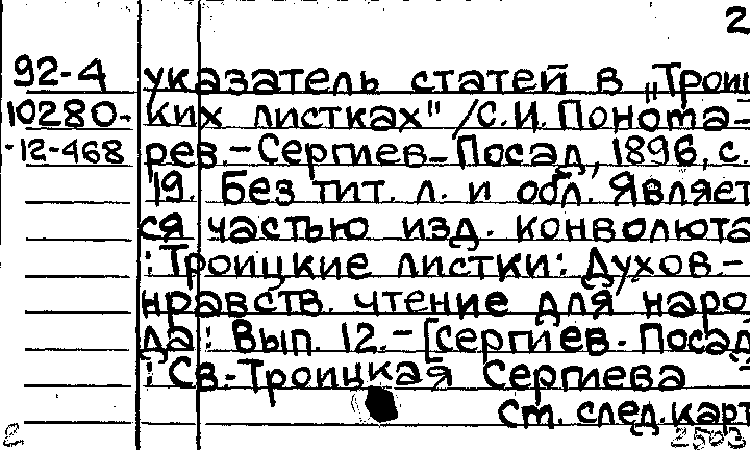 2
92-4 указатель статей в „Троиц
10280- ких листках" /С.И. Понома-
-12-468 рев.-Сергиев-Посад, 1896, с.
19. Без тит. л. и обл. Являет
ся частью изд. конволюта
: Троицкие листки: Духов.-
нравств. чтение для наро
да: Вып. 12.-[Сергиев. Посад
: Св.-Троицкая Сергиева
см. след.карт
2 2503